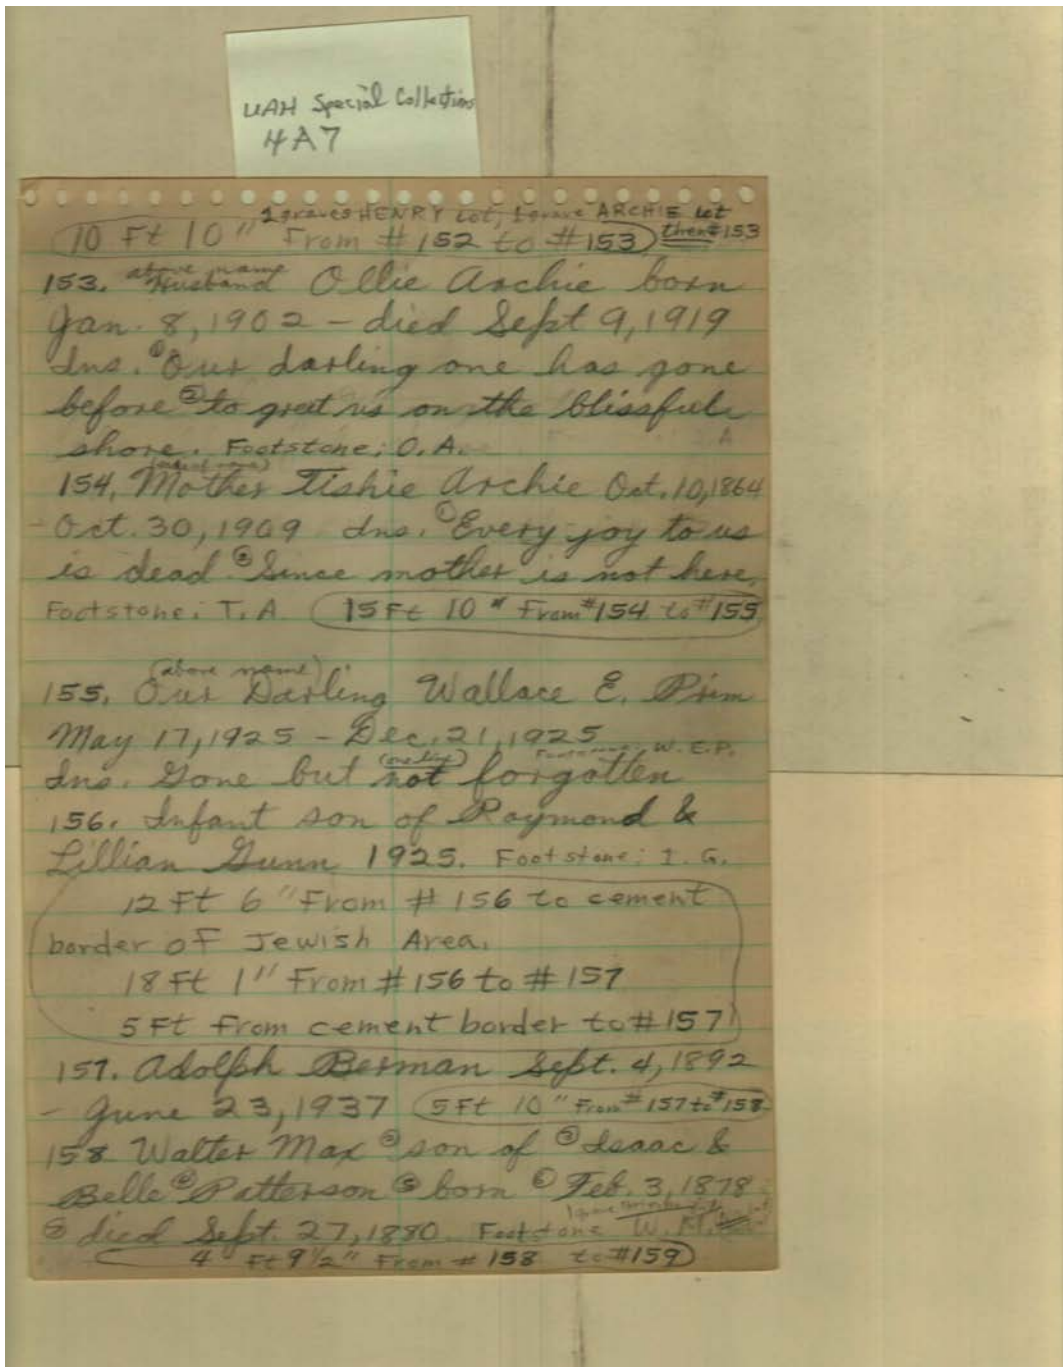 UAH Special Collections
4A7
2 graves HENRY Lot, 1 grave ARCHIE Lot
10 Ft 10" From #152 to #153 then #153
above name
153. Husband Ollie Archie born
Jan. 8, 1902 - died Sept 9, 1919
Ins. ① Our darling one has gone
before ② to greet us on the blissful
shore. Footstone: O. A.
154. Mother Tishie Archie Oct. 10, 1864
- Oct. 30, 1909 Ins. ① Every joy to us
is dead ② Since mother is not here.
Footstone: T. A 15 Ft 10" From #154 to #155
(above name)
155. Our Darling Wallace E. Prim
May 17, 1925 - Dec. 21, 1925
(one line) Footstone: W. E. P.
Ins. Gone but not forgotten
156. Infant son of Raymond &
Lillian Gunn 1925. Footstone: I. G.
12 Ft 6" From #156 to cement
border of Jewish Area.
18 Ft 1" From #156 to #157
5 Ft from cement border to #157
157. Adolph Berman Sept. 4, 1892
- June 23, 1937 5 Ft 10" From #157 to #158
158 Walter Max ② son of ③ Isaac &
Belle ④ Patterson ⑤ born ⑥ Feb. 3, 1878
⑦ died Sept. 27, 1880. Footstone W. M.
4 Ft 9 1/2" From #158 to #159